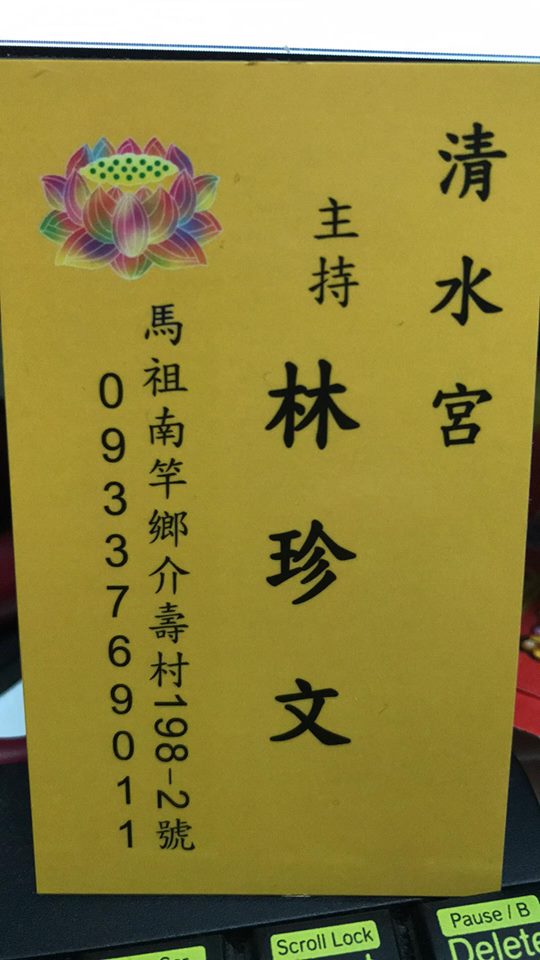 清水宮
主持
林珍文
馬祖南竿鄉介壽村198-2號
0933769011
Scroll Lock
Pause / B
Delete